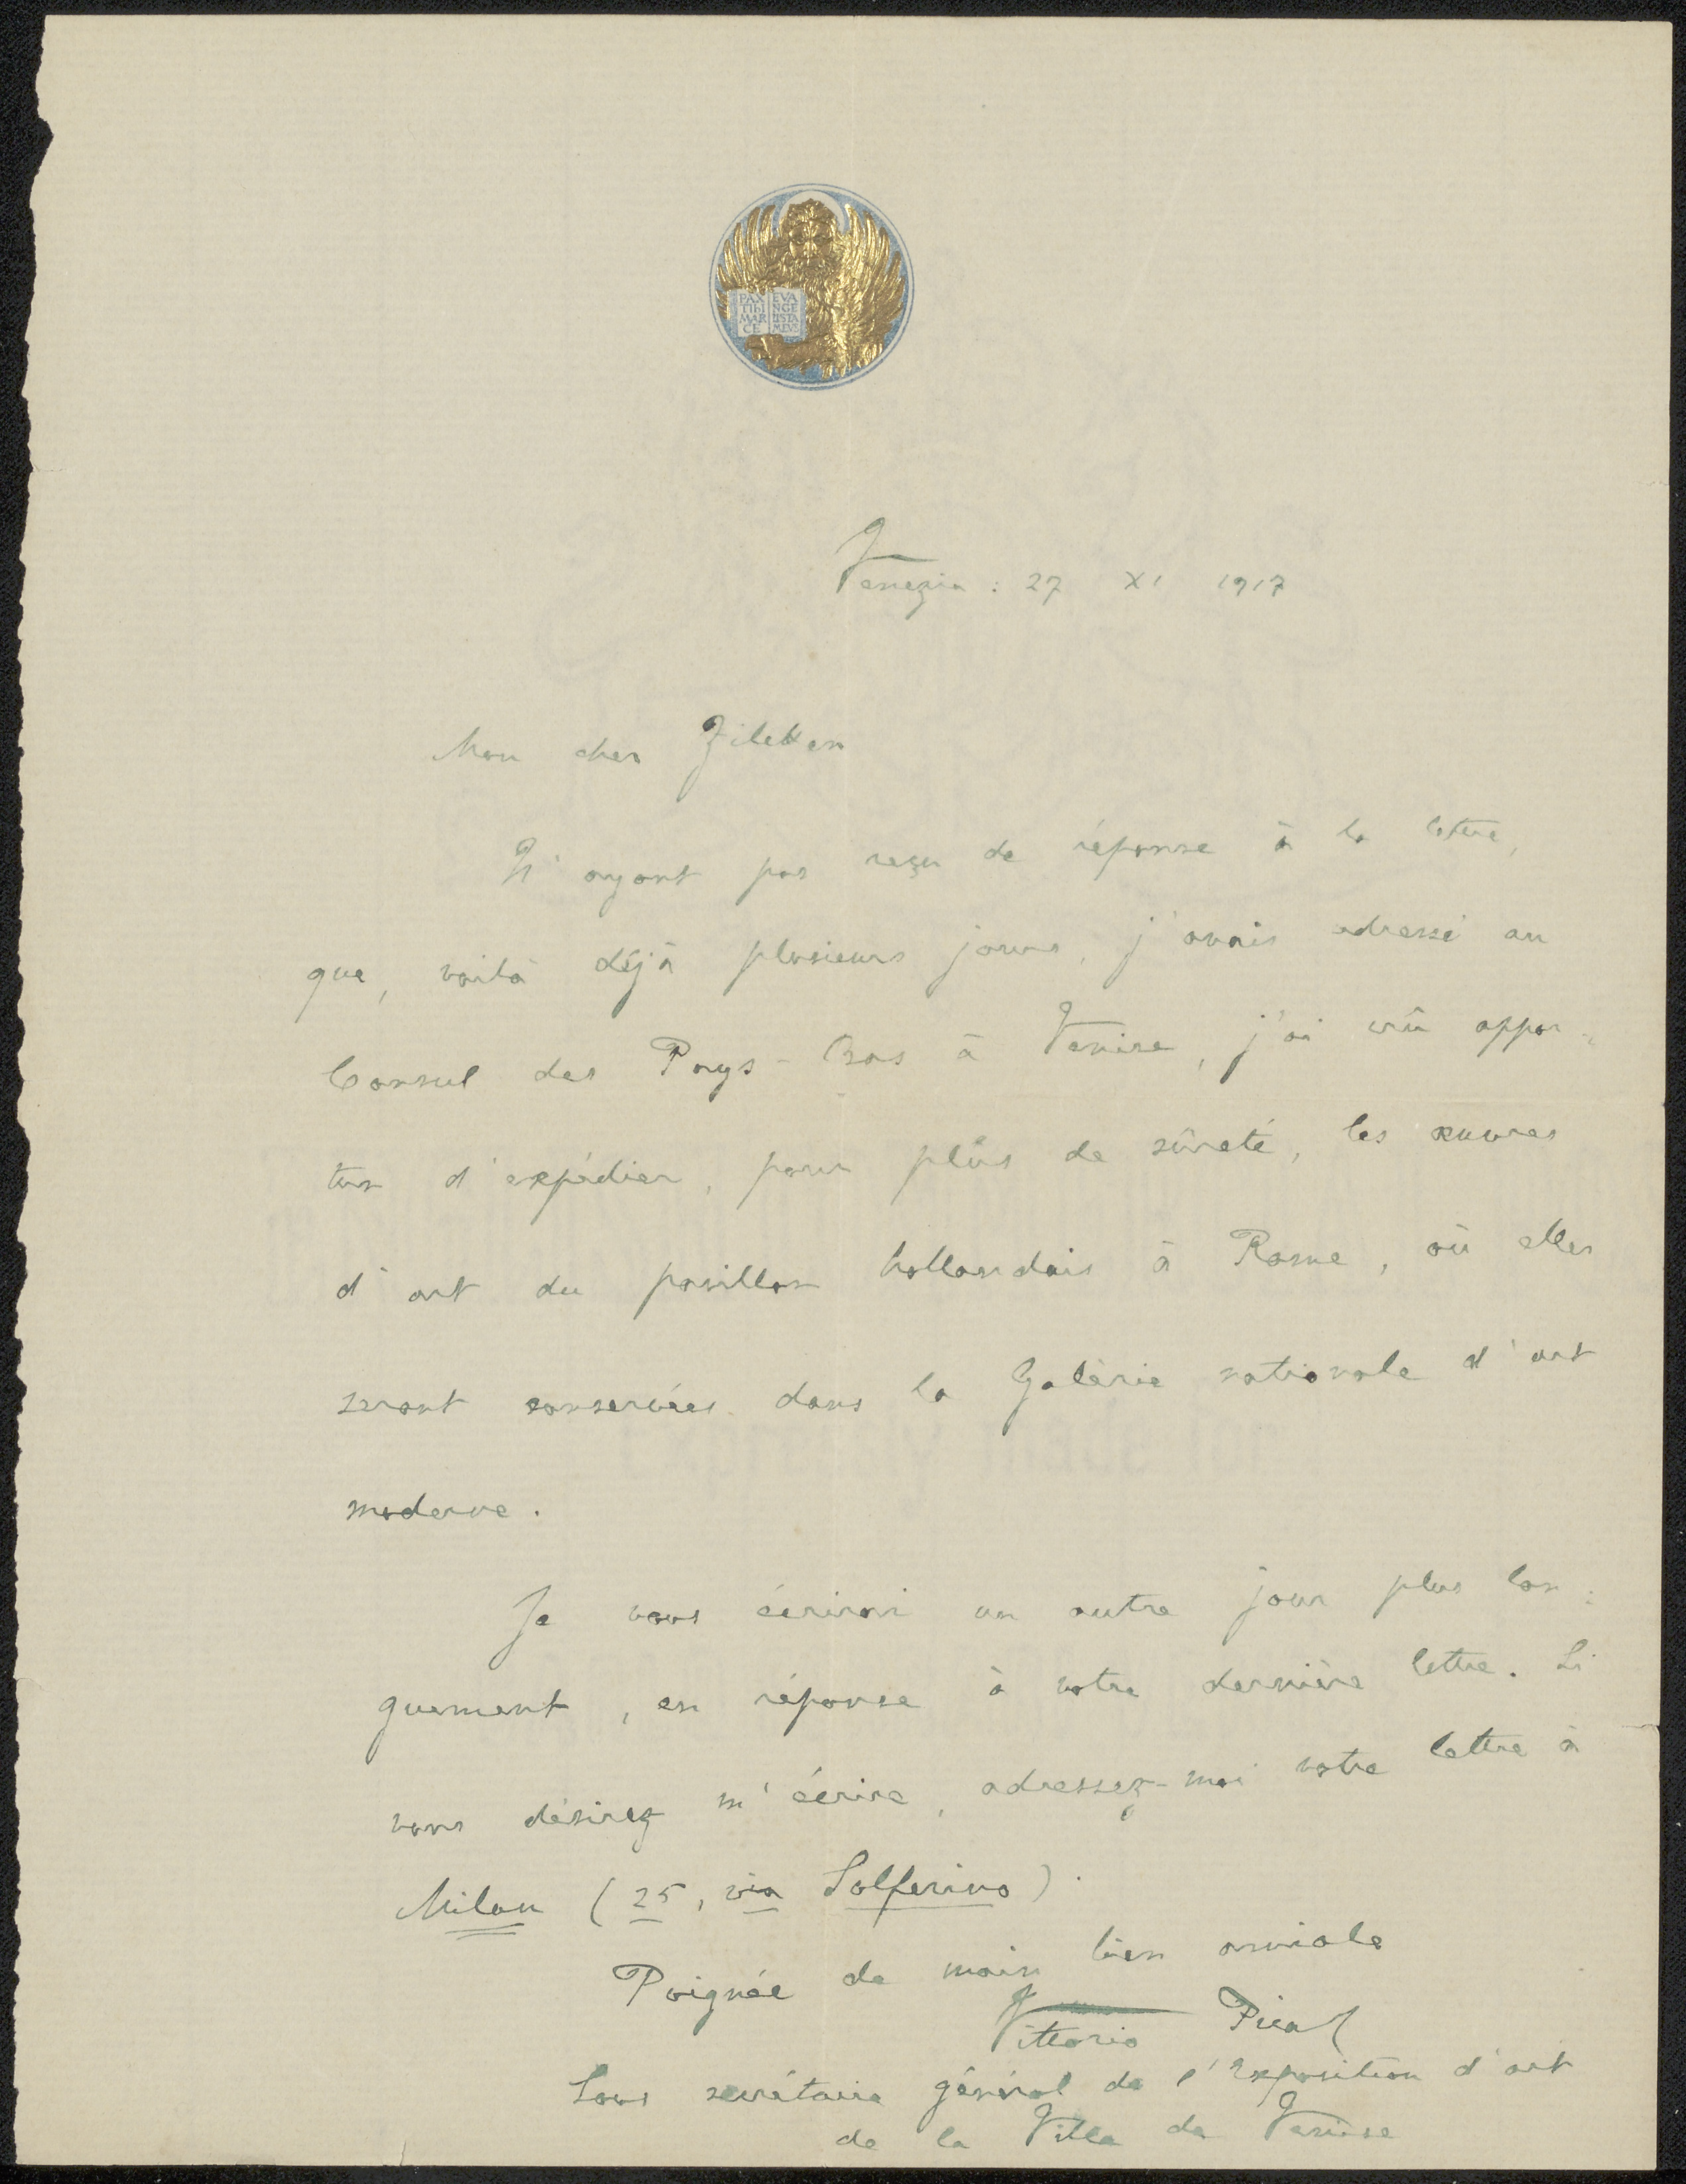 PAX TIBI MARCE EVANGELISTA MEVS
Venezia : 27 XI 1917
Mon cher Zilcken
N'ayant pas reçu de réponse à la lettre,
que, voilà déjà plusieurs jours, j'avais adressé au
Consul des Pays-Bas à Venise, j'ai crû oppor-
tun d'expédier, pour plus de sûreté, les œuvres
d'art du pavillon hollandais à Rome, où elles
seront conservées dans la Galèrie nationale d'art
moderne.
Je vous écrirai un autre jour plus lon-
guement, en réponse à votre dernière lettre. Si
vous désirez m'écrire, adressez-moi votre lettre à
Milan (25, via Solferino).
Poignée de main bien amicale
Vittorio Pica
Sous secrétaire général de l'Exposition d'art
de la Ville de Venise